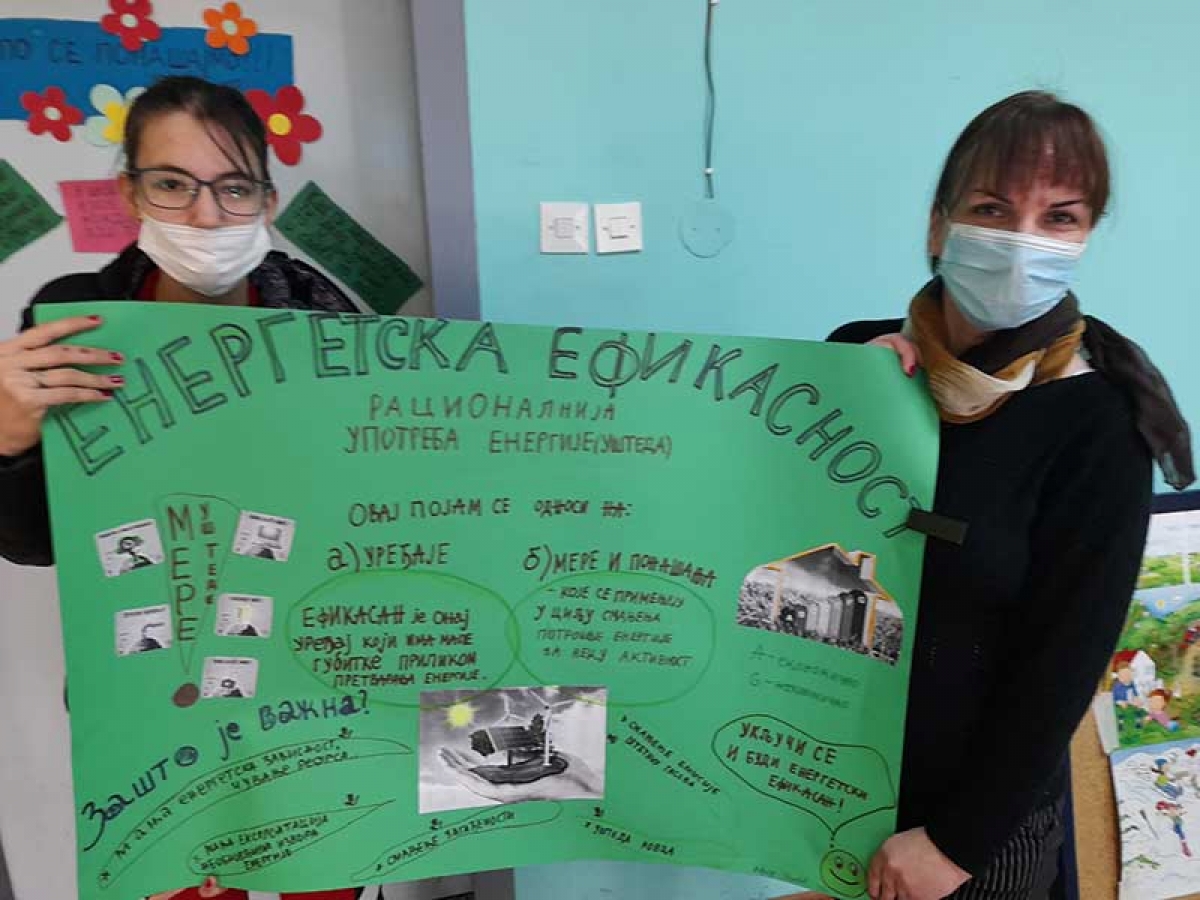 СЕ ПОНАШАМО!!!
ЕНЕРГЕТСКА ЕФИКАСНОСТ
РАЦИОНАЛНИЈА
УПОТРЕБА ЕНЕРГИЈЕ(УШТЕДА)
МЕРЕ
УШТЕДЕ
ОВАЈ ПОЈАМ СЕ ОДНОСИ НА:
а) УРЕЂАЈЕ
ЕФИКАСАН је ОНАЈ
УРЕЂАЈ КОЈИ ИМА МАЛЕ
ГУБИТКЕ ПРИЛИКОМ
ПРЕТВАРАЊА ЕНЕРГИЈЕ.
б) МЕРЕ И ПОНАШАЊА
- КОЈЕ СЕ ПРИМЕЊУЈУ
У ЦИЉУ СМАЊЕЊА
ПОТРОШЊЕ ЕНЕРГИЈЕ
ЗА НЕКУ АКТИВНОСТ
А-
G-
ЗАШТО је ВАЖНА?
* МАЊА ЕНЕРГЕТСКА ЗАВИСНОСТ,
ЧУВАЊЕ РЕСУРСА..
* МАЊА ЕКСПЛОАТАЦИЈА
НЕОБНОВЉИВИХ ИЗВОРА
ЕНЕРГИЈЕ
* СМАЊЕЊЕ ЗАГАЂЕНОСТИ
* СМАЊЕЊЕ ЕМИСИЈЕ
* УШТЕДА НОВЦА
УКЉУЧИ СЕ
И БУДИ ЕНЕРГЕТСКИ
ЕФИКАСАН!